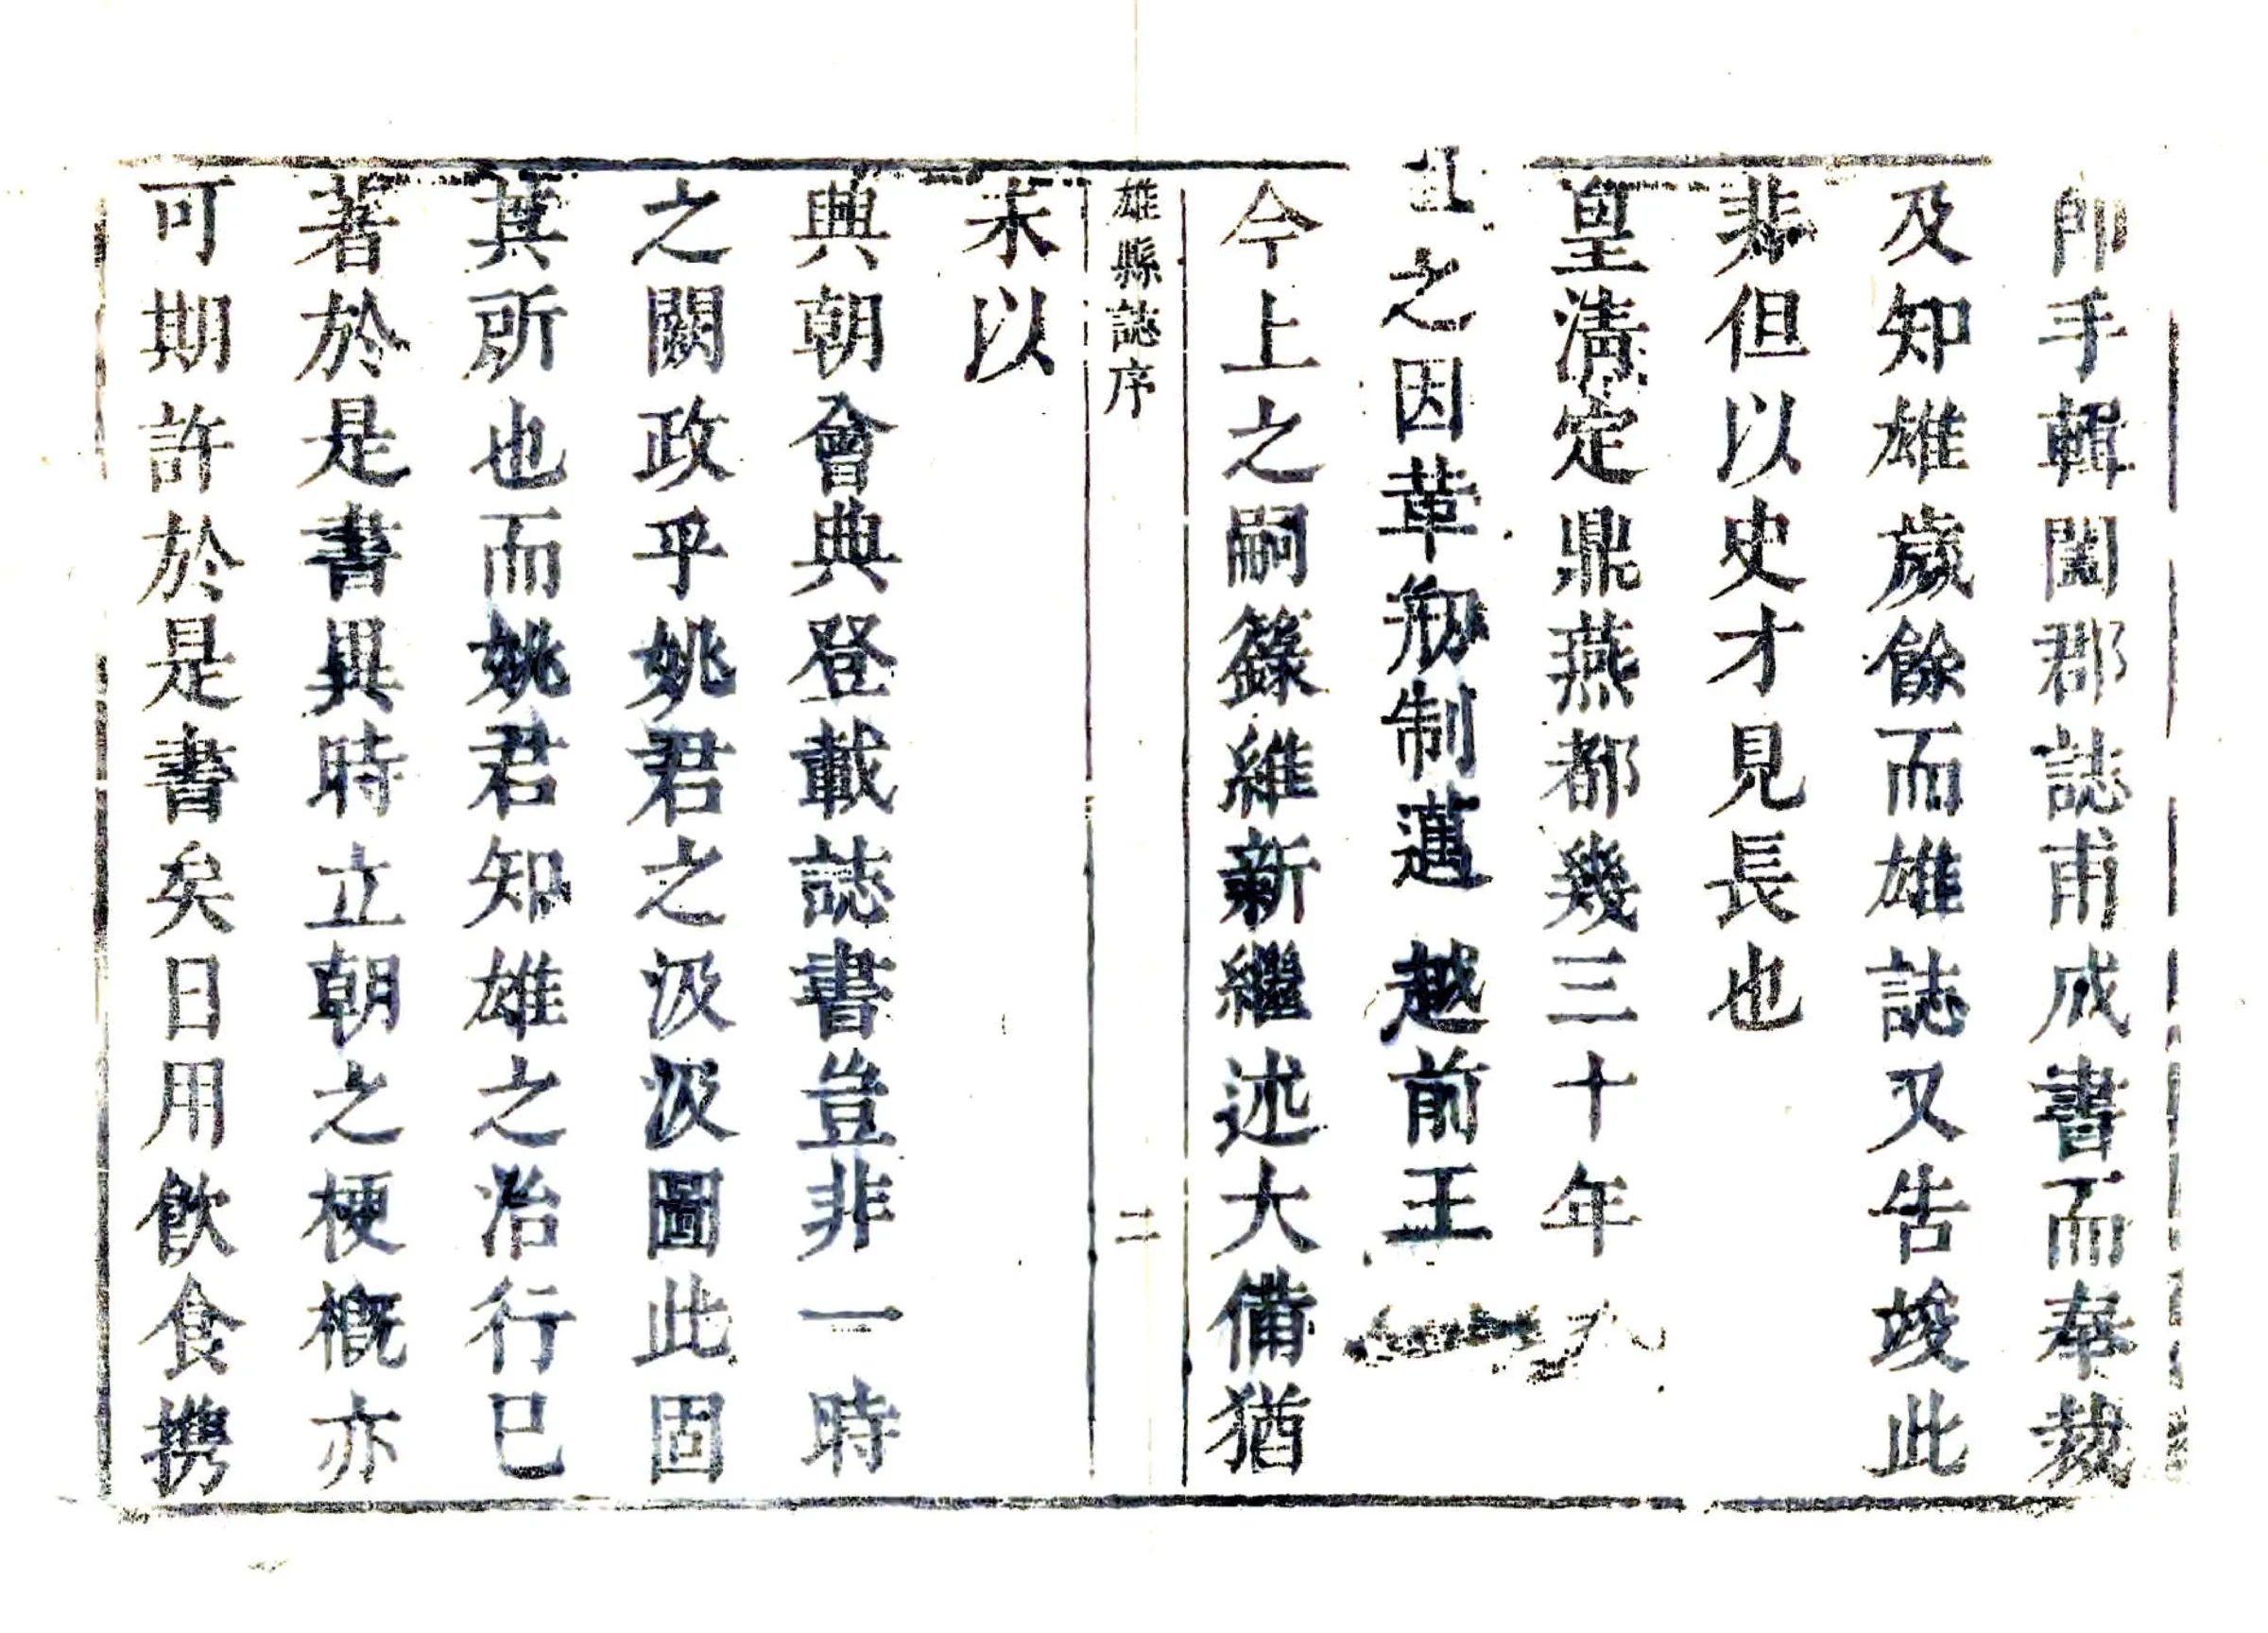 即手輯闔郡誌甫成書而奉裁
及知雄歲餘而雄誌又告竣此
非但以史才見長也
皇清定鼎燕都幾三十年
之因革刱制邁越前王
今上之嗣籙維新繼述大備猶
未以
雄縣誌序
二
興朝會典登載誌書豈非一時
之闕政乎姚君之汲汲圖此固
其所也而姚君知雄之治行已
著於是書異時立朝之梗概亦
可期許於是書矣日用飲食攜